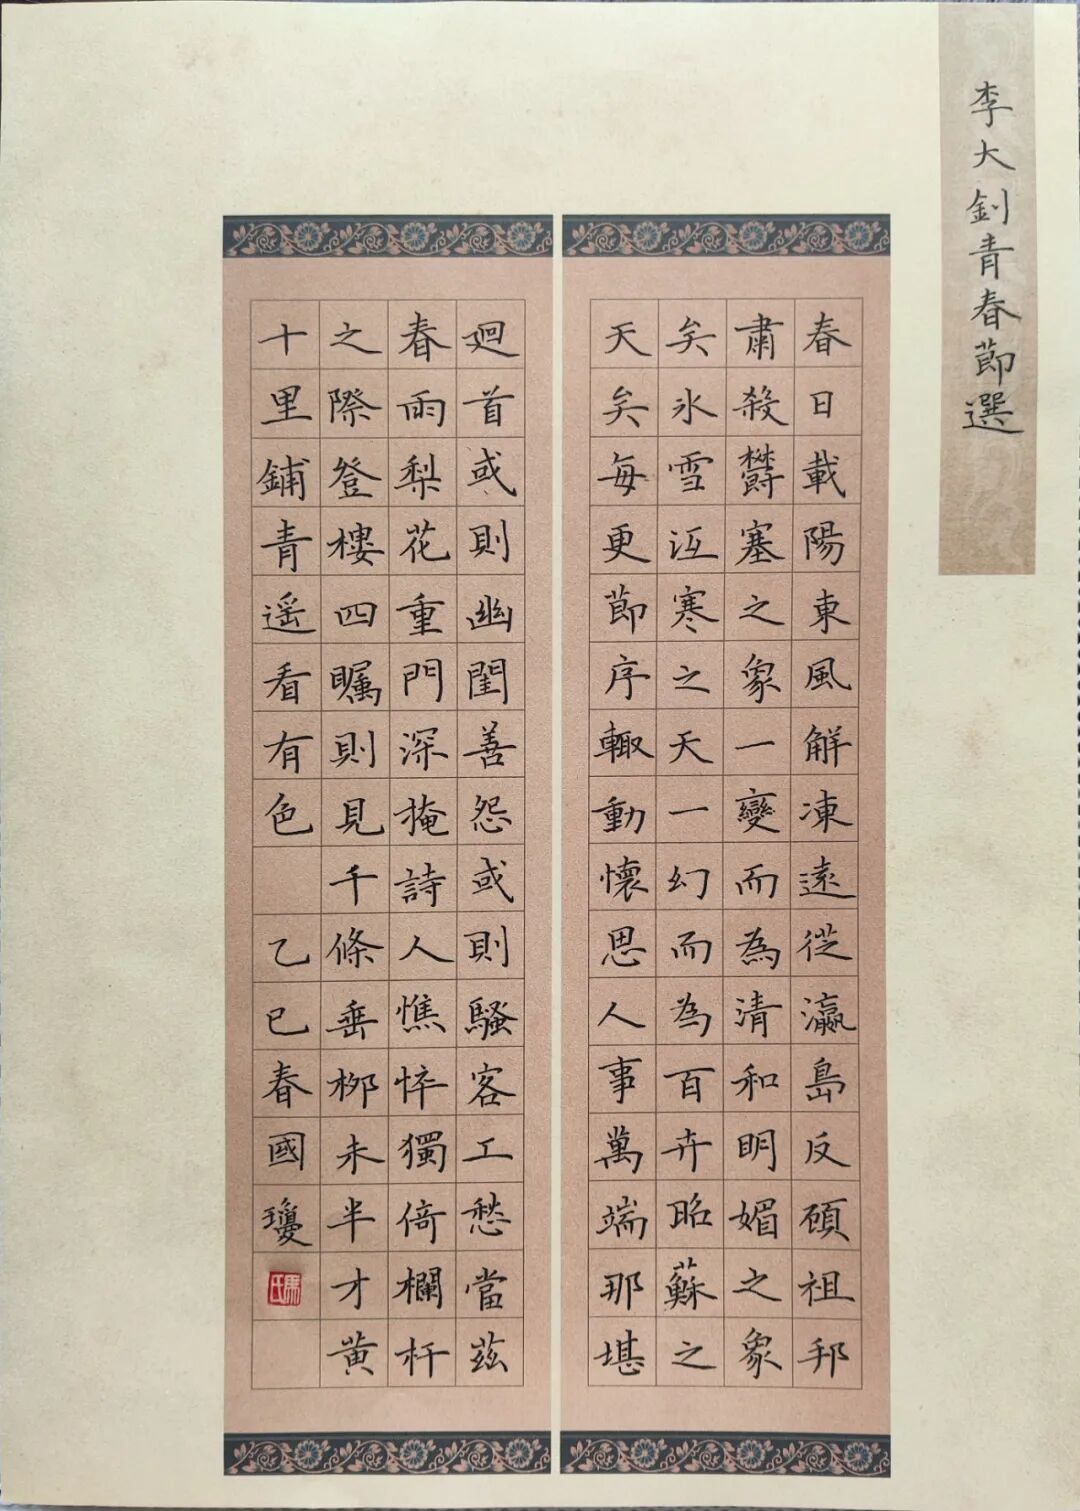 李大釗青春節選
春日載陽東風解凍遠從瀛島反顧祖邦
肅殺鬱塞之象一變而為清和明媚之象
矣冰雪沍寒之天一幻而為百卉昭蘇之
天矣每更節序輒動懷思人事萬端那堪
迴首或則幽閨善怨或則騷客工愁當茲
春雨梨花重門深掩詩人憔悴獨倚欄杆
之際登樓四矚則見千條垂柳未半才黃
十里鋪青遥看有色
乙巳春國瓊
馬氏